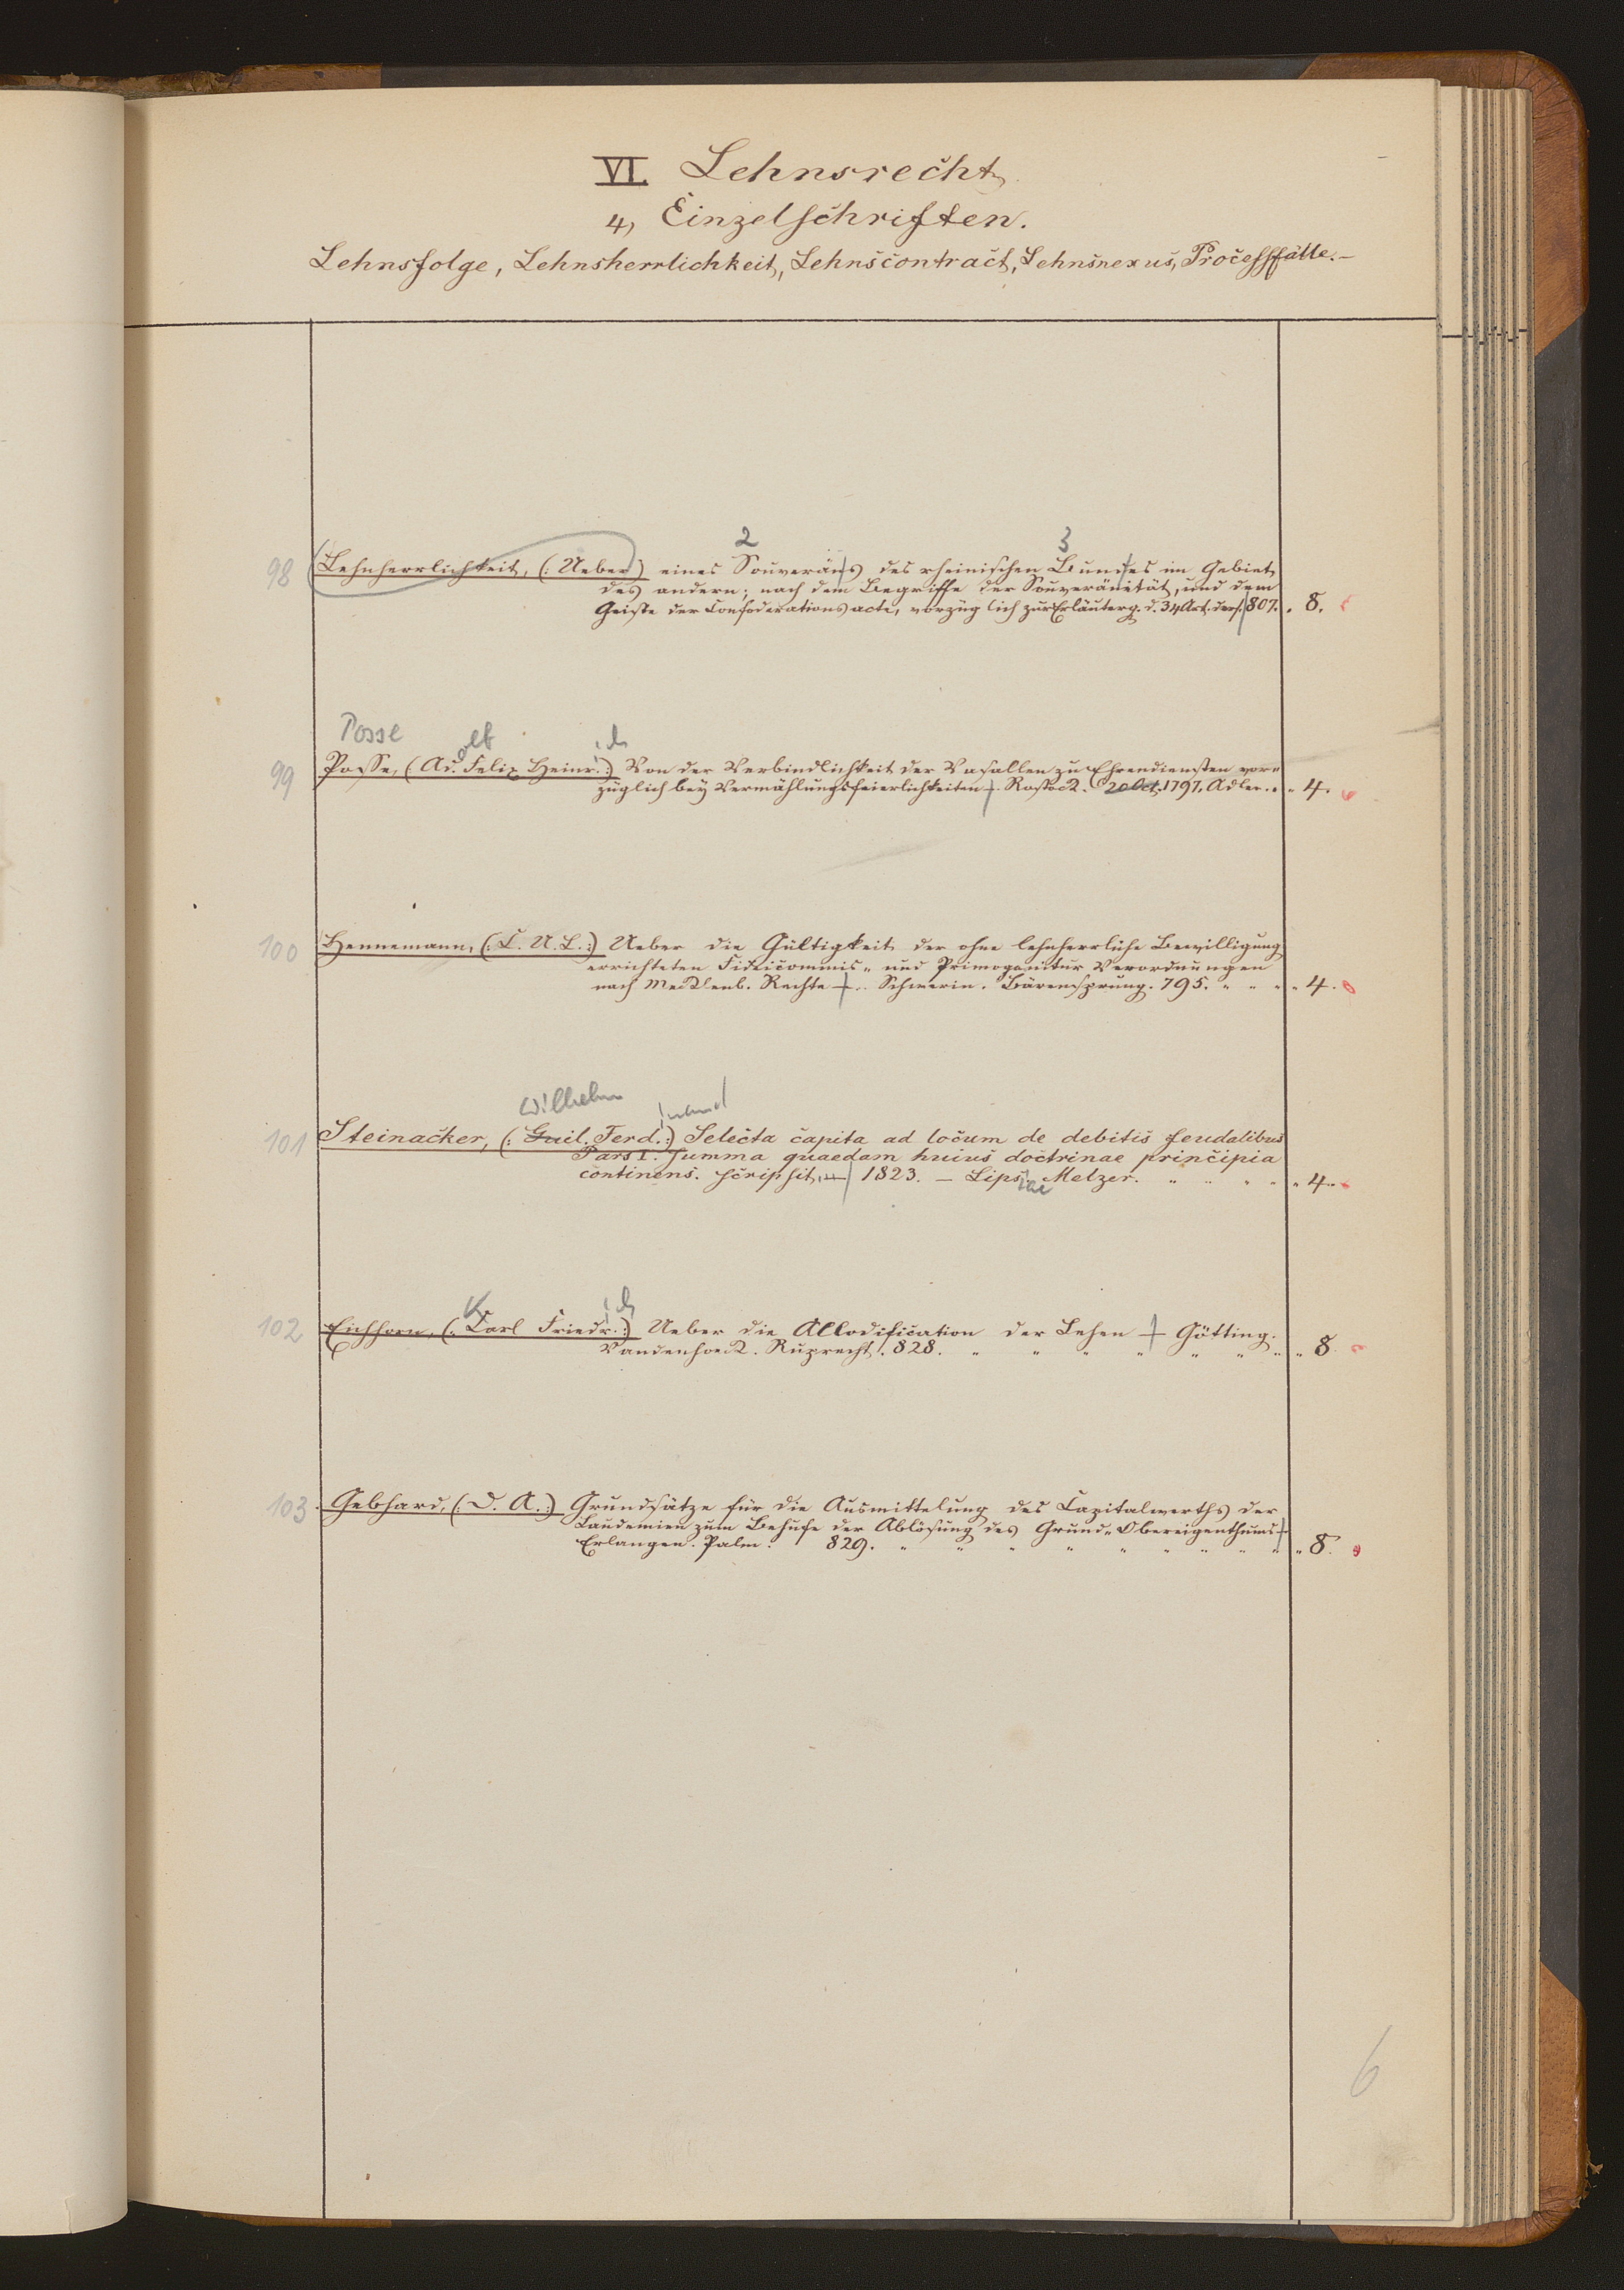 VI. Lehnsrecht.
4, Einzelschriften.
Lehnsfolge, Lehnsherrlichkeit, Lehnscontract, Lehnsnexus, Processfälle.-
2 3
98 Lehnherrlichkeit, (: Ueber) eines Souveräns des rheinischen Bundes im Gebiet
des andern; nach dem Begriffe der Souveränität, und dem
Geiste der Confoderationsacte, vorzüglich zur Erläuterg. d. 34 Art. ders. 807. . 8.
Posse olf ich
99 Posse, (Ad. Felix Heinr.:) Von der Verbindlichkeit der Vasallen zu Ehrendiensten vor=
züglich bey Vermählungsfeierlichkeiten - Rostock. 20 Oct. 1797. Adler. . „ 4.
100 Hennemann, (: C. U. L. :) Ueber die Gültigkeit der ohne lehnherrliche Bewilligung
errichteten Fideicommis- und Primogenitur Verordnungen
nach Mecklenb. Rechte -. Schwerin. Bärensprung. 795. „ „ „ „ 4.
Wilhelm inand
101 Steinacker, (: Guil. Ferd. :) Selecta capita ad locum de debitis feudalibus
Pars I. summa quaedam huius doctrinae principia
continens. scripsit, - 1823. - Lips. iae Melzer. „ „ „ „ „ 4.
K ich
102 Eichhorn, (: Carl Friedr. :) Ueber die Allodification der Lehen - Götting.
Vandenhoeck. Ruprecht. 828. „ „ „ „ „ „ „ „ 8.
103 Gebhard, (: D. A. :) Grundsätze für die Ausmittelung des Capitalwerths der
Laudemien zum Behufe der Ablösung des Grund-Obereigenthums -
Erlangen. Palm. 829. „ „ „ „ „ „ „ „ „ „ 8.
6